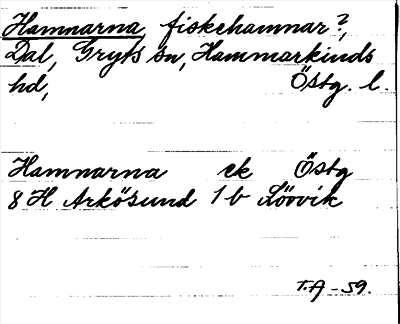 Hamnarna, fiskehamnar?,
Dal, Gryts sn, Hammarkinds
hd, Östg. l.
Hamnarna ek Östg
8 H Arkösund 1 b Lövvik
T.A-59.